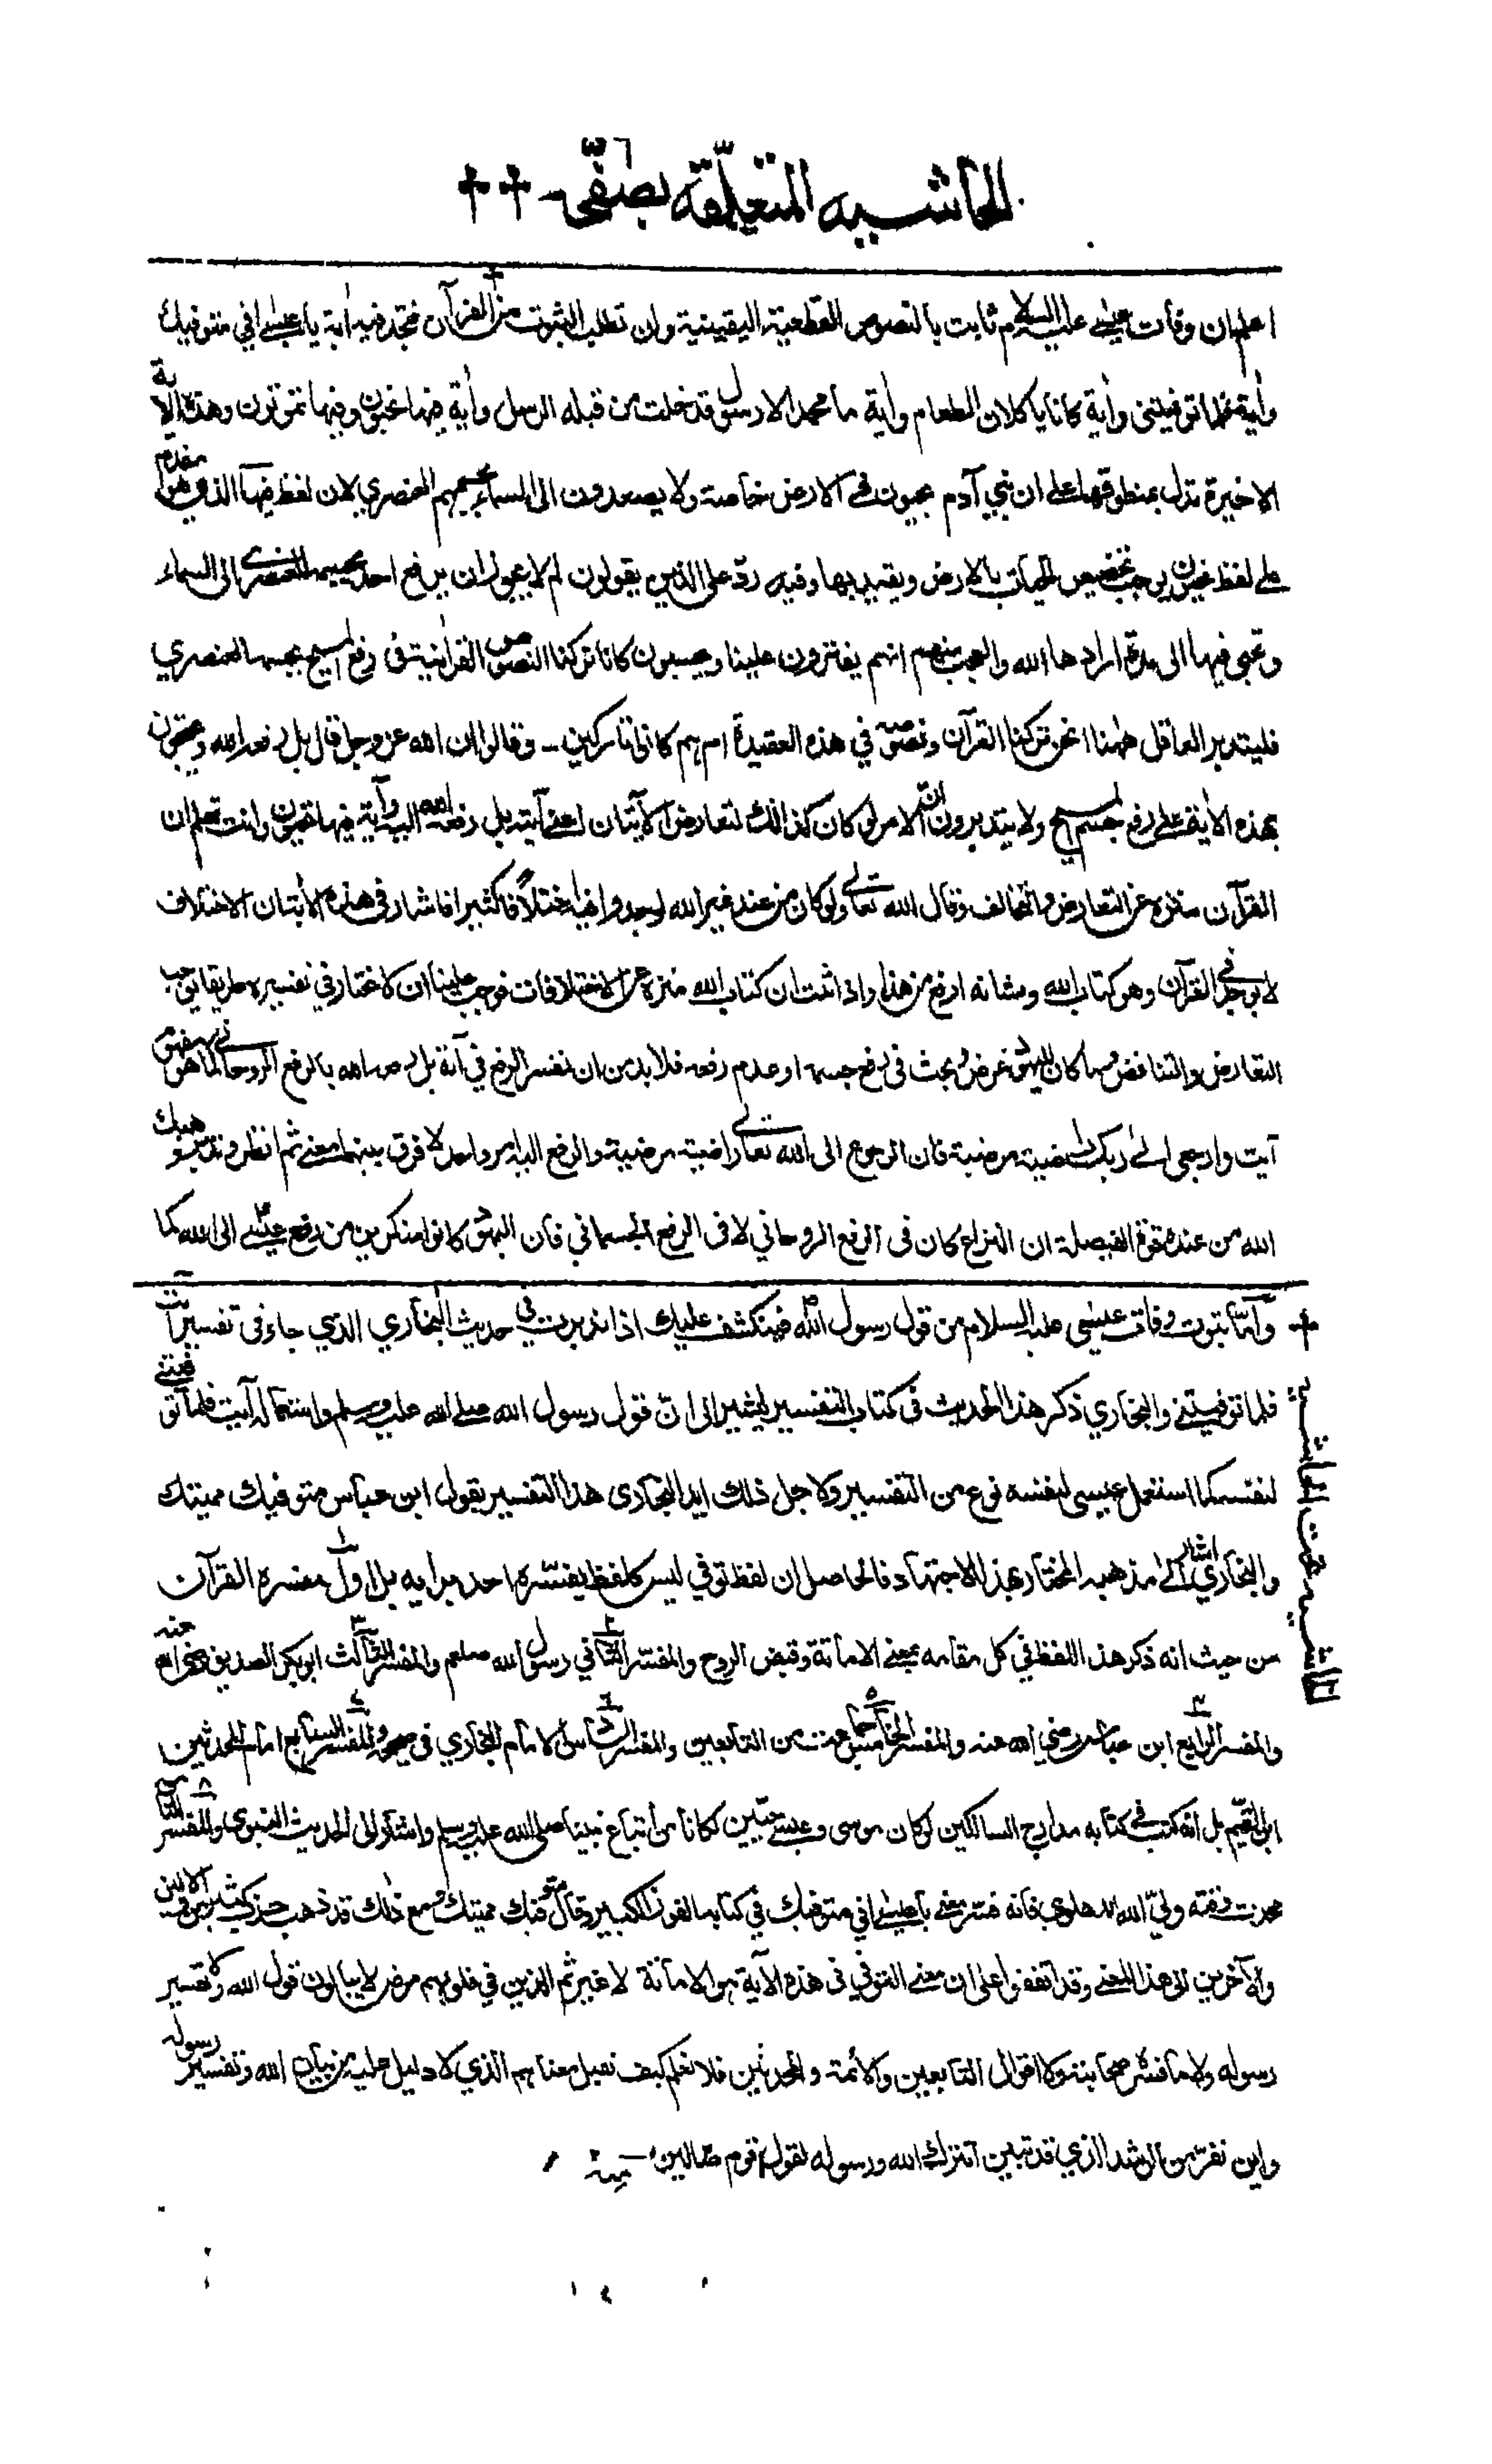 الحاشيه المتعلّقة بصفحٰى ٦٣ ✝✝
اعلم ان وفات عيسٰى عليه السلام ثابت بالنصوص القطعية اليقينية وان تطلب الثبوت من القرآن فتجد فيه اٰية يا عيسٰى اني متوفيك
واٰية فلما توفيتنى واٰية كانا ياكلان الطعام واٰية ما محمد الا رسول قد خلت من قبله الرسل واٰية فيها تحيون وفيها تموتون وهذه الاٰية
الاخيرة تدل بمنطوقها على ان بني آدم يحيون فى الارض خاصة ولا يصعدون الى السماء بجسمهم العنصري لان لفظ فيها الذي هو مقدم
على لفظ تحيون يوجب تخصيص الحياة بالارض ويقيد بها وفيه ردّ على الذين يقولون لم لا يجوز ان يرفع احد بجسمه العنصرى الى السماء
ويحيى فيها الى مدة ارادها الله والعجب منهم انهم يفترون علينا ويحسبون كانا تركنا النصوص القراٰنية فى رفع المسيح بجسمه العنصري
فليتدبر العاقل ههنا انحن تركنا القرآن ونصوصه في هذه العقيدة ام هم كانوا تاركين - وقالوا ان الله عز وجل قال بل رفعه الله ويحتجون
بهذه الاٰية على رفع جسم المسيح ولا يتدبرون ان الامر لو كان كذالك لتعارض الآيتان اعنى آية بل رفعه الله اليه وآية فيها تحيون وانت تعلم ان
القرآن منزه عن التعارض والتخالف وقال الله تعالٰى ولو كان من عند غير الله لوجدوا فيه اختلافًا كثيرا فاشار فى هذه الاٰية ان الاختلاف
لا يوجد فى القرآن وهو كتاب الله وشانه ارفع من هذا واذا ثبت ان كتاب الله منزه عن الاختلافات فوجب علينا ان لا نختار في تفسيره طريقا يوجب
التعارض والتناقض وما كان لليهود غرض وبحث فى رفع جسمه او عدم رفعه فلا بد من ان نفسر الرفع في آية بل رفعه الله بالرفع الروحانى كما هو مفهوم
آيت وارجعى الٰى ربك راضية مرضية فان الرجوع الى الله تعالٰى راضية مرضية والرفع اليه امر واحد لا فرق بينهما معنى ثم انظر وتدبر وهبك
الله من عنده قوة الفيصلة ان النزاع كان فى الرفع الروحاني لا فى الرفع الجسماني فان اليهود كانوا منكرين من رفع عيسٰى الى الله كما
✝ وامّا ثبوت وفات عيسٰى عليه السلام من قول رسول الله فينكشف عليك اذا تدبرت فى حديث البخاري الذي جاء فى تفسير آيت
فلما توفيتنى والبخاري ذكر هذا الحديث فى كتاب التفسير ليشير الى انّ قول رسول الله صلى الله عليه وسلم واستعماله آيت فلما توفيتنى
لنفسه كما استعمل عيسى لنفسه نوع من التفسير ولاجل ذلك ايد البخارى هذا التفسير بقول ابن عباس متوفيك مميتك
والبخاري اشار الٰى مذهبه المختار بهذا الاجتهاد فالحاصل ان لفظ توفي ليس كلفظ يفسّره احد برايه بل اول مفسره القرآن
من حيث انه ذكر هذا اللفظ في كل مقامه بمعنى الاماتة وقبض الروح والمفسّر الثاني رسول الله صلعم والمفسر الثالث ابو بكر الصديق رضى الله عنه
والمفسر الرابع ابن عباس رضي الله عنه والمفسر الخامس جماعت من التابعين والمفسر السادس الامام البخاري فى صحيحه والمفسر السابع امام المحدثين
ابن القيّم بل انّه كتب فى كتابه مدارج السالكين لو كان موسى وعيسى حيّين لكانا من اتباع نبينا صلى الله عليه وسلم واشار الى الحديث النبوى والمفسر الثامن
محدث وقته وليّ الله الدهلوي فانه فسّر معنى يا عيسٰى اني متوفيك في كتابه الفوز الكبير وقال متوفيك مميتك ومع ذلك قد ذهب حزب كثير من الاولين
والآخرين الى هذا المعنى وقد اتفقوا على ان معنى التوفي فى هذه الآية هو الاماتة لا غير ثم الذين في قلوبهم مرض لا يبالون قول الله ولا تفسير
رسوله ولا ما فسّر صحابته ولا اقوال التابعين والائمة والمحدثين فلا نعلم كيف نقبل معناهم الذي لا دليل عليه من بيان الله وتفسير رسوله
واين نفرّ من الرشد الذي قد تبين انترك الله ورسوله لقول قوم ضالين - منه
الحاشيه تحت الحاشيه